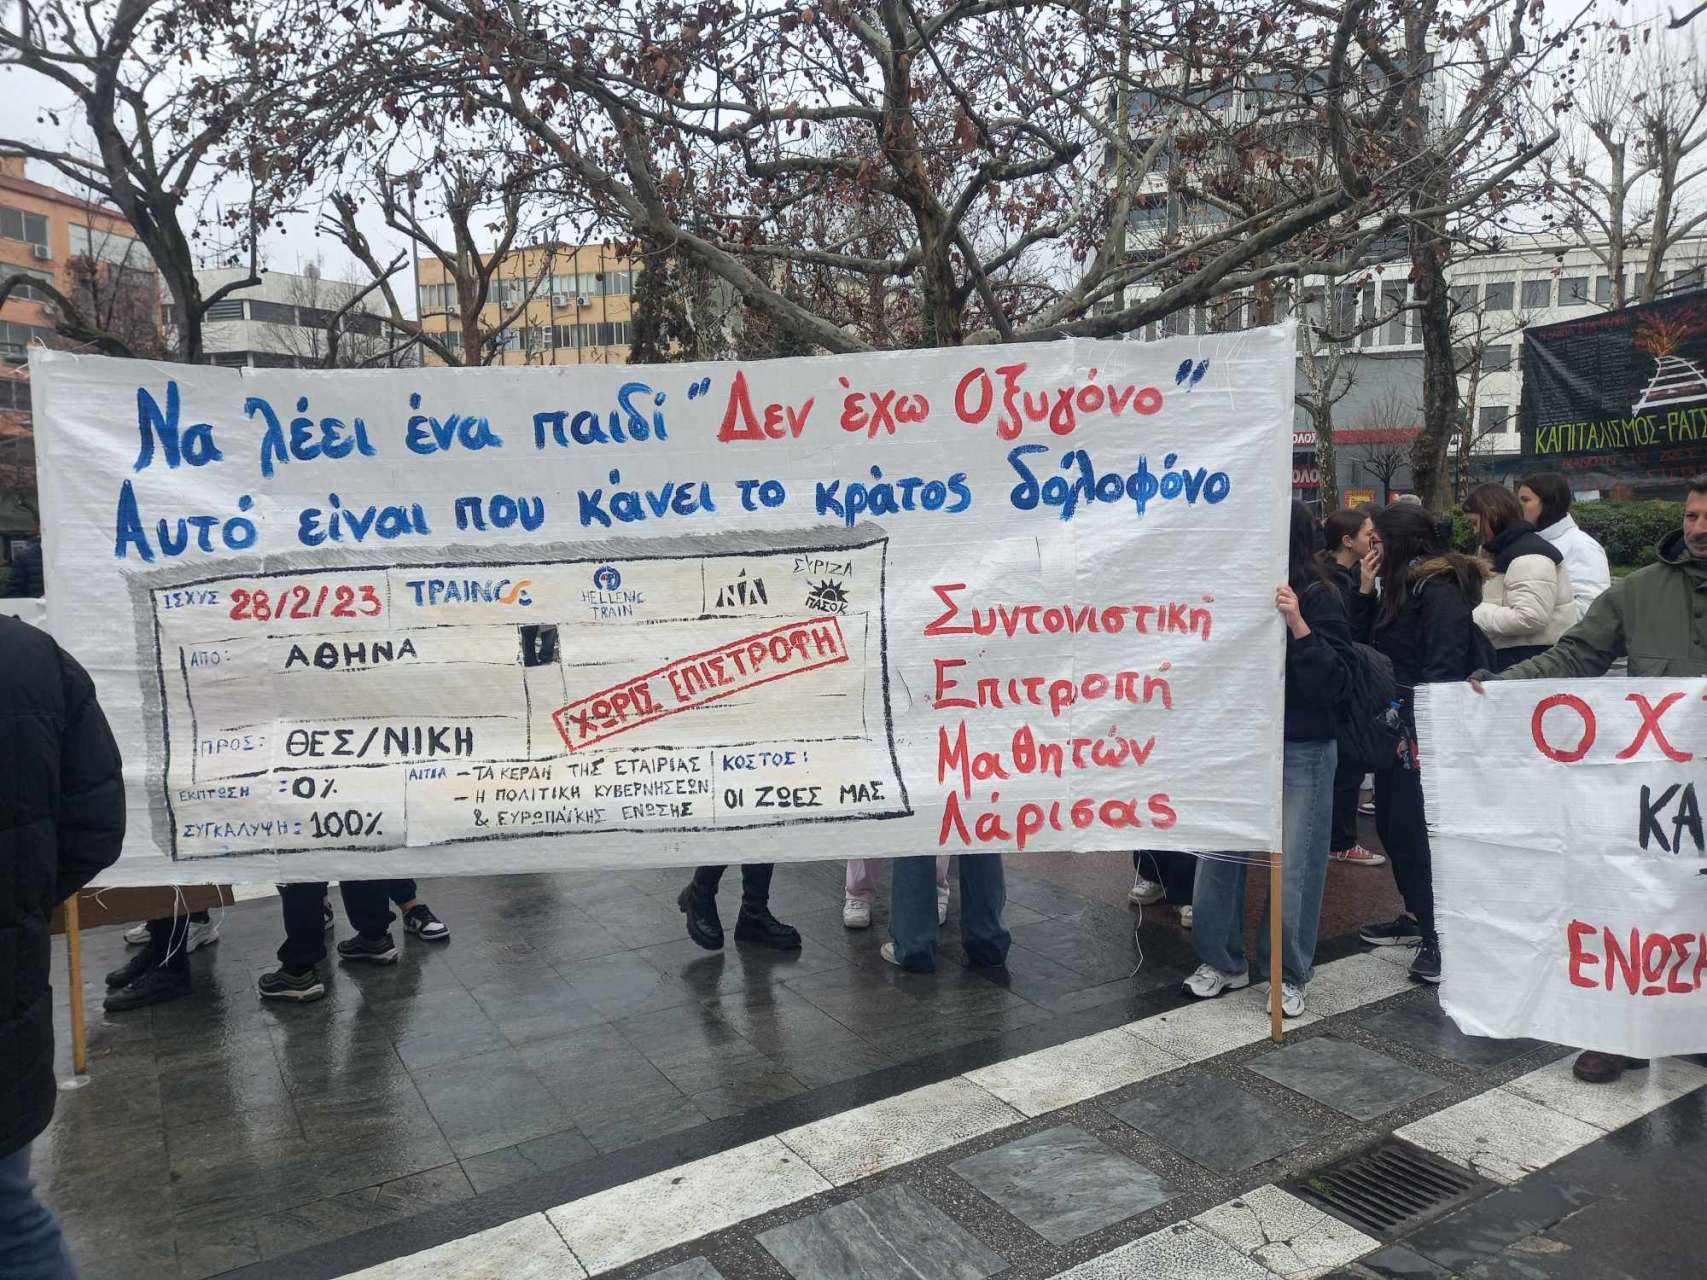 Να λέει ένα παιδί "Δεν έχω Οξυγόνο"
Αυτό είναι που κάνει το κράτος δολοφόνο
ΙΣΧΥΣ 28/2/23
ΤΡΑΙΝΟΣΕ
HELLENIC
TRAIN
ΝΔ
ΣΥΡΙΖΑ
ΠΑΣΟΚ
ΑΠΟ: ΑΘΗΝΑ
ΠΡΟΣ: ΘΕΣ/ΝΙΚΗ
ΧΩΡΙΣ ΕΠΙΣΤΡΟΦΗ
ΕΚΠΤΩΣΗ :0%
ΣΥΓΚΑΛΥΨΗ: 100%
ΑΙΤΙΑ - ΤΑ ΚΕΡΔΗ ΤΗΣ ΕΤΑΙΡΙΑΣ
- Η ΠΟΛΙΤΙΚΗ ΚΥΒΕΡΝΗΣΕΩΝ
& ΕΥΡΩΠΑΪΚΗΣ ΕΝΩΣΗΣ
ΚΟΣΤΟΣ:
ΟΙ ΖΩΕΣ ΜΑΣ
Συντονιστική
Επιτροπή
Μαθητών
Λάρισας
ΚΑΠΙΤΑΛΙΣΜΟΣ-ΡΑΤΣ
ΟΧ
ΚΑ
ΕΝΩΣΗ